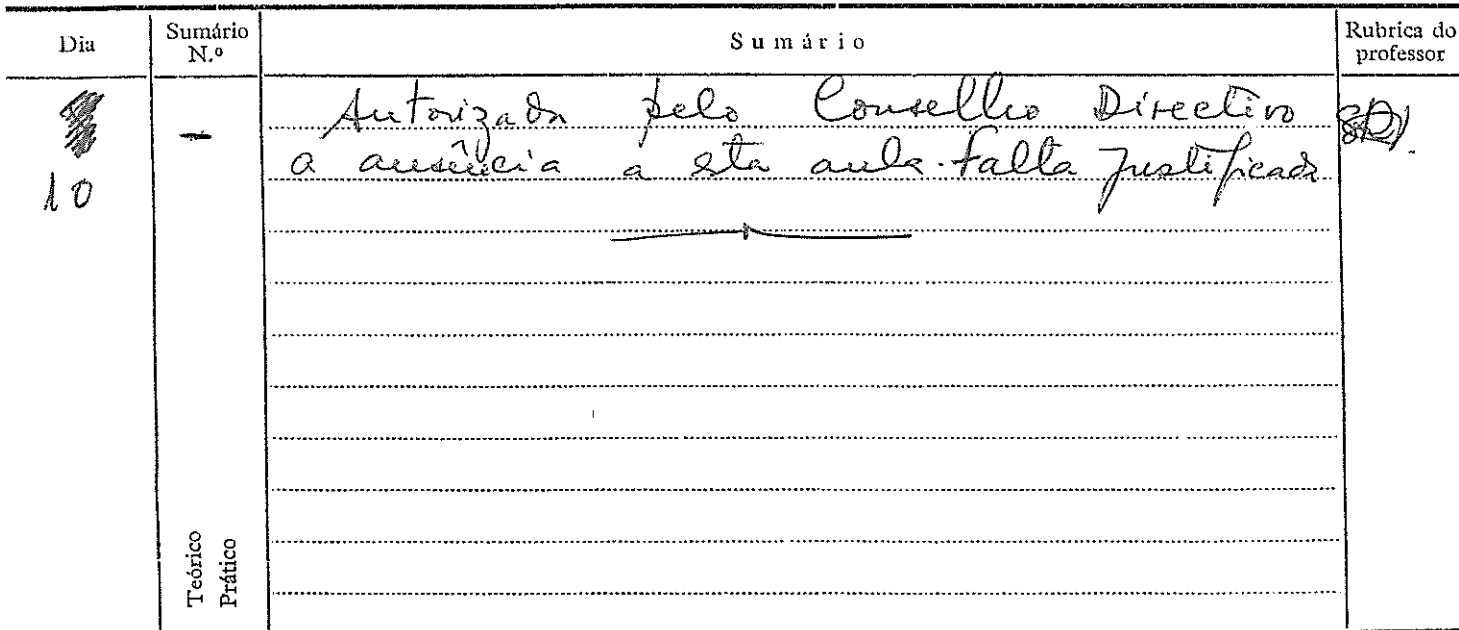 Dia
Sumário N.º
Sumário
Rubrica do professor
10
-
Autorizada pelo Conselho Directivo
a ausência a esta aula. Falta justificada
Teórico
Prático